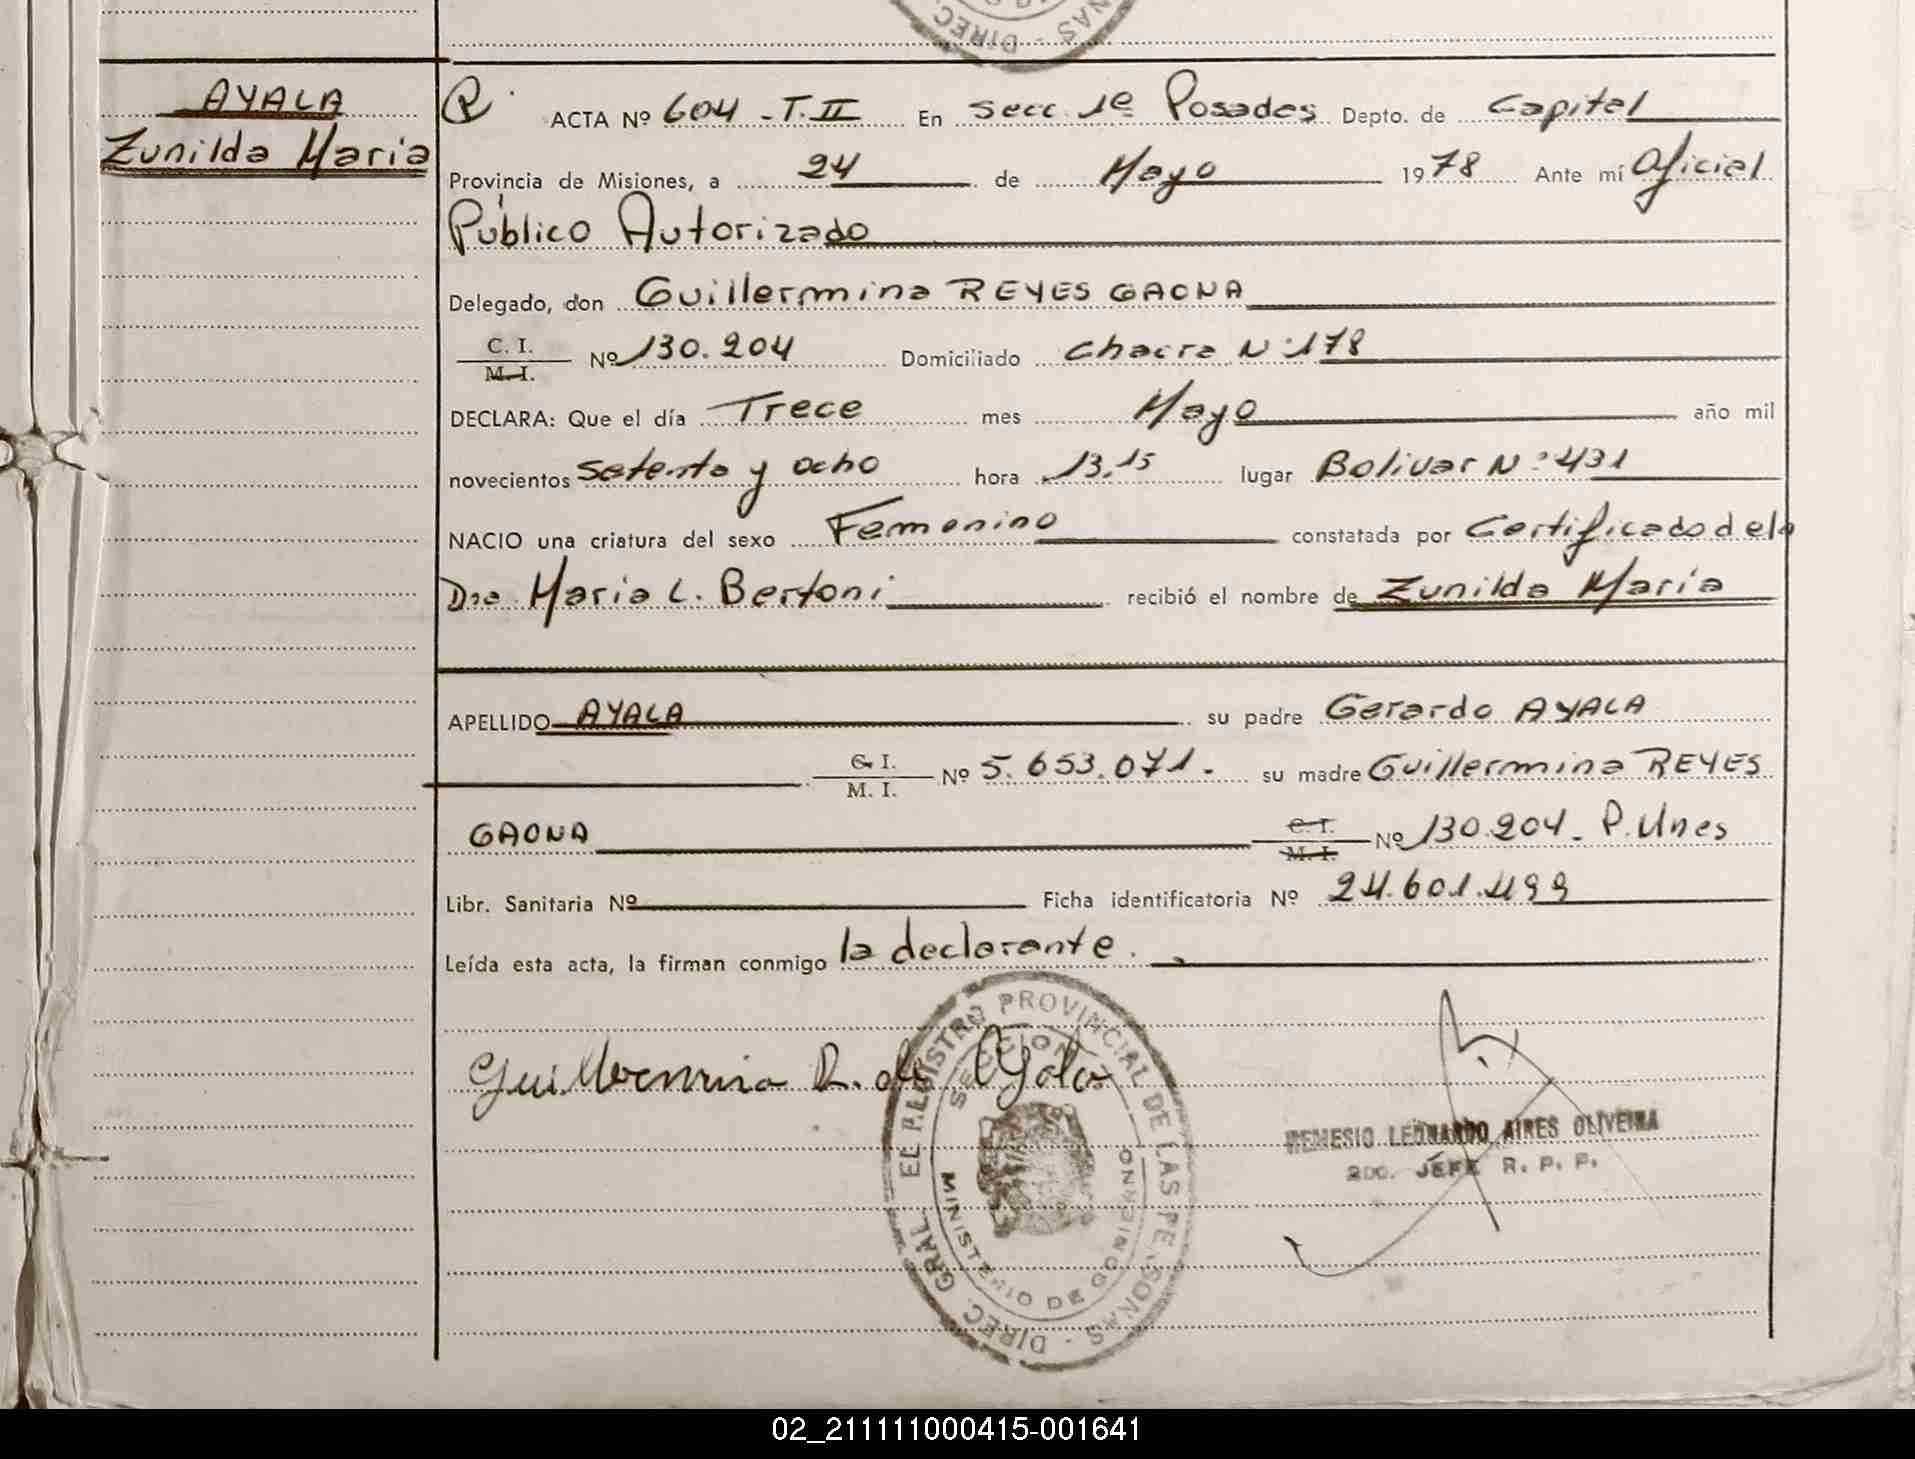 AYALA
Zunilda María
R. ACTA Nº 604 - T. II En Secc 1ª Posadas Depto. de Capital
Provincia de Misiones, a 24 de Mayo 1978 Ante mí Oficial
Público Autorizado
Delegado, don Guillermina REYES GAONA
C. I.
M. I. Nº 130.204 Domiciliado Chacra N: 178
DECLARA: Que el día Trece mes Mayo año mil
novecientos Setenta y ocho hora 13,15 lugar Bolivar N: 431
NACIO una criatura del sexo Femenino constatada por Certificado de la
Dra. María L. Bertoni recibió el nombre de Zunilda María
APELLIDO AYALA su padre Gerardo AYALA
C. I.
M. I. Nº 5.653.071. su madre Guillermina REYES
GAONA C. I.
M. I. Nº 130.204 - P. Mnes
Libr. Sanitaria Nº Ficha identificatoria Nº 24.601.499
Leída esta acta, la firman conmigo la declarante.
Guillermina R. de Ayala
DIREC. GRAL. EL REGISTRO PROVINCIAL DE LAS PERSONAS -
SECCION
MINISTERIO DE GOBIERNO
NEMESIO LEONARDO AIRES OLIVEIRA
2DO. JEFE R. P. P.
DIREC. NAS -
02_211111000415-001641